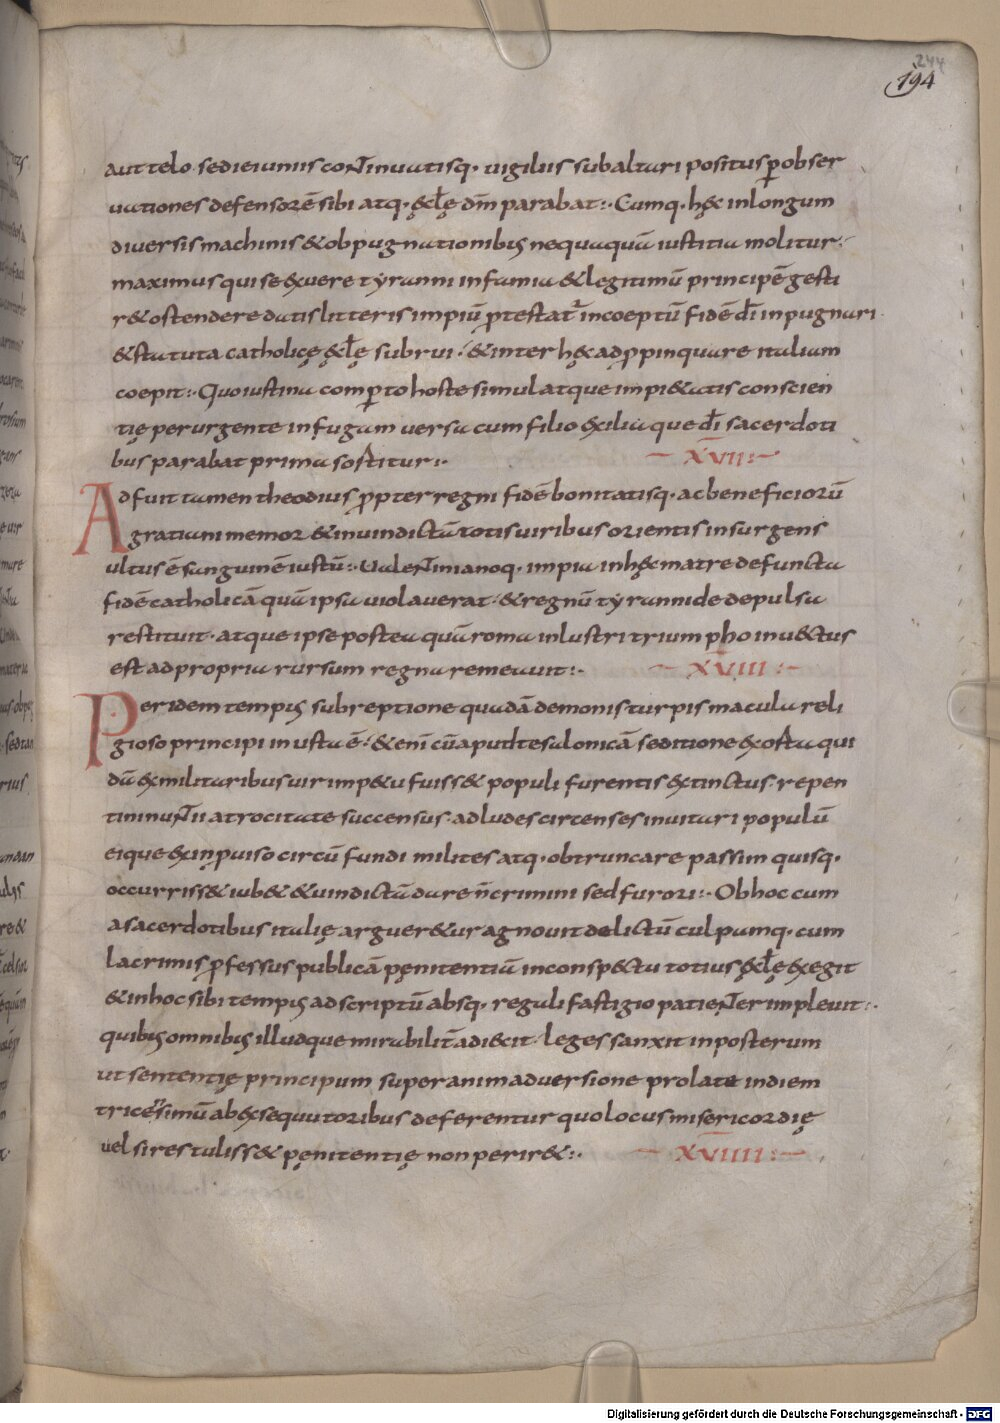 244
194
aut telo sed ieiuniis continuatisq· uigiliis sub altari positus p̱ obser
uationes defensorē sibi atq· ęccłę dm̄ parabat:· Cumq· hęc in longum
diuersis machinis & obpugnationibus nequaquā iustina molitur·
maximus qui se exuere tyranni infamia & legitimū principē gesti
r& ostendere datis litteris impiū p̱testat̄ incoeptū fidē dī inpugnari·
& statuta catholicę ęccłę subrui· & inter hęc adp̱pinquare italiam
coepit:· Quo iustina comp̱to hoste simul atque impi&atis conscien
tię perurgente in fugam uersa cum filio exilia que dī sacerdoti
bus parabat prima sortitur:· XVII:
Adfuit tamen theodius p̱pter regni fidē bonitatisq· ac beneficiorū
gratiani memor & in uindictā totis uiribus orientis insurgens
ultus ē sanguinē iustū:· Ualentinianoq· impia in hęc matre defuncta
fidē catholicā quā ipsa uiolauerat· & regnū tyrannide depulsa
restituit· atque ipse postea quā roma inlustri triumpho inuectus
est ad propria rursum regna remeauit:· XVIII:
Per idem tempus subreptione quadā demonis turpis macula reli
gioso principi inusta ē· & enī cū aput thesalonicā seditione exorta qui
dā ex militaribus uir imp&u fuiss& populi furentis extinctus repen
tini nuntii atrocitate succensus· ad ludes circenses inuitari populū
eique ex inp̱uiso circū fundi milites atq· obtruncare passim quisq·
occurriss& iub& & uindictā dare n̄ crimini sed furori:· Ob hoc cum
a sacerdotibus italię arguer&ur agnouit delictū culpamq· cum
lacrimis p̱fessus publicā pęnitentiā in consp&ctu totius ęccłę exegit
& in hoc sibi tempus adscriptū absq· regali fastigio patienter impleuit:·
quibus omnibus illud que mirabilit̄ adiecit· leges sanxit in posterum
ut sententię principum super animaduersione prolate in diem
tricesimū ab exsequutoribus deferentur quo locus misericordię
uel si res tuliss& pęnitentię non perir&:· XVIIII:
Digitalisierung gefördert durch die Deutsche Forschungsgemeinschaft - DFG